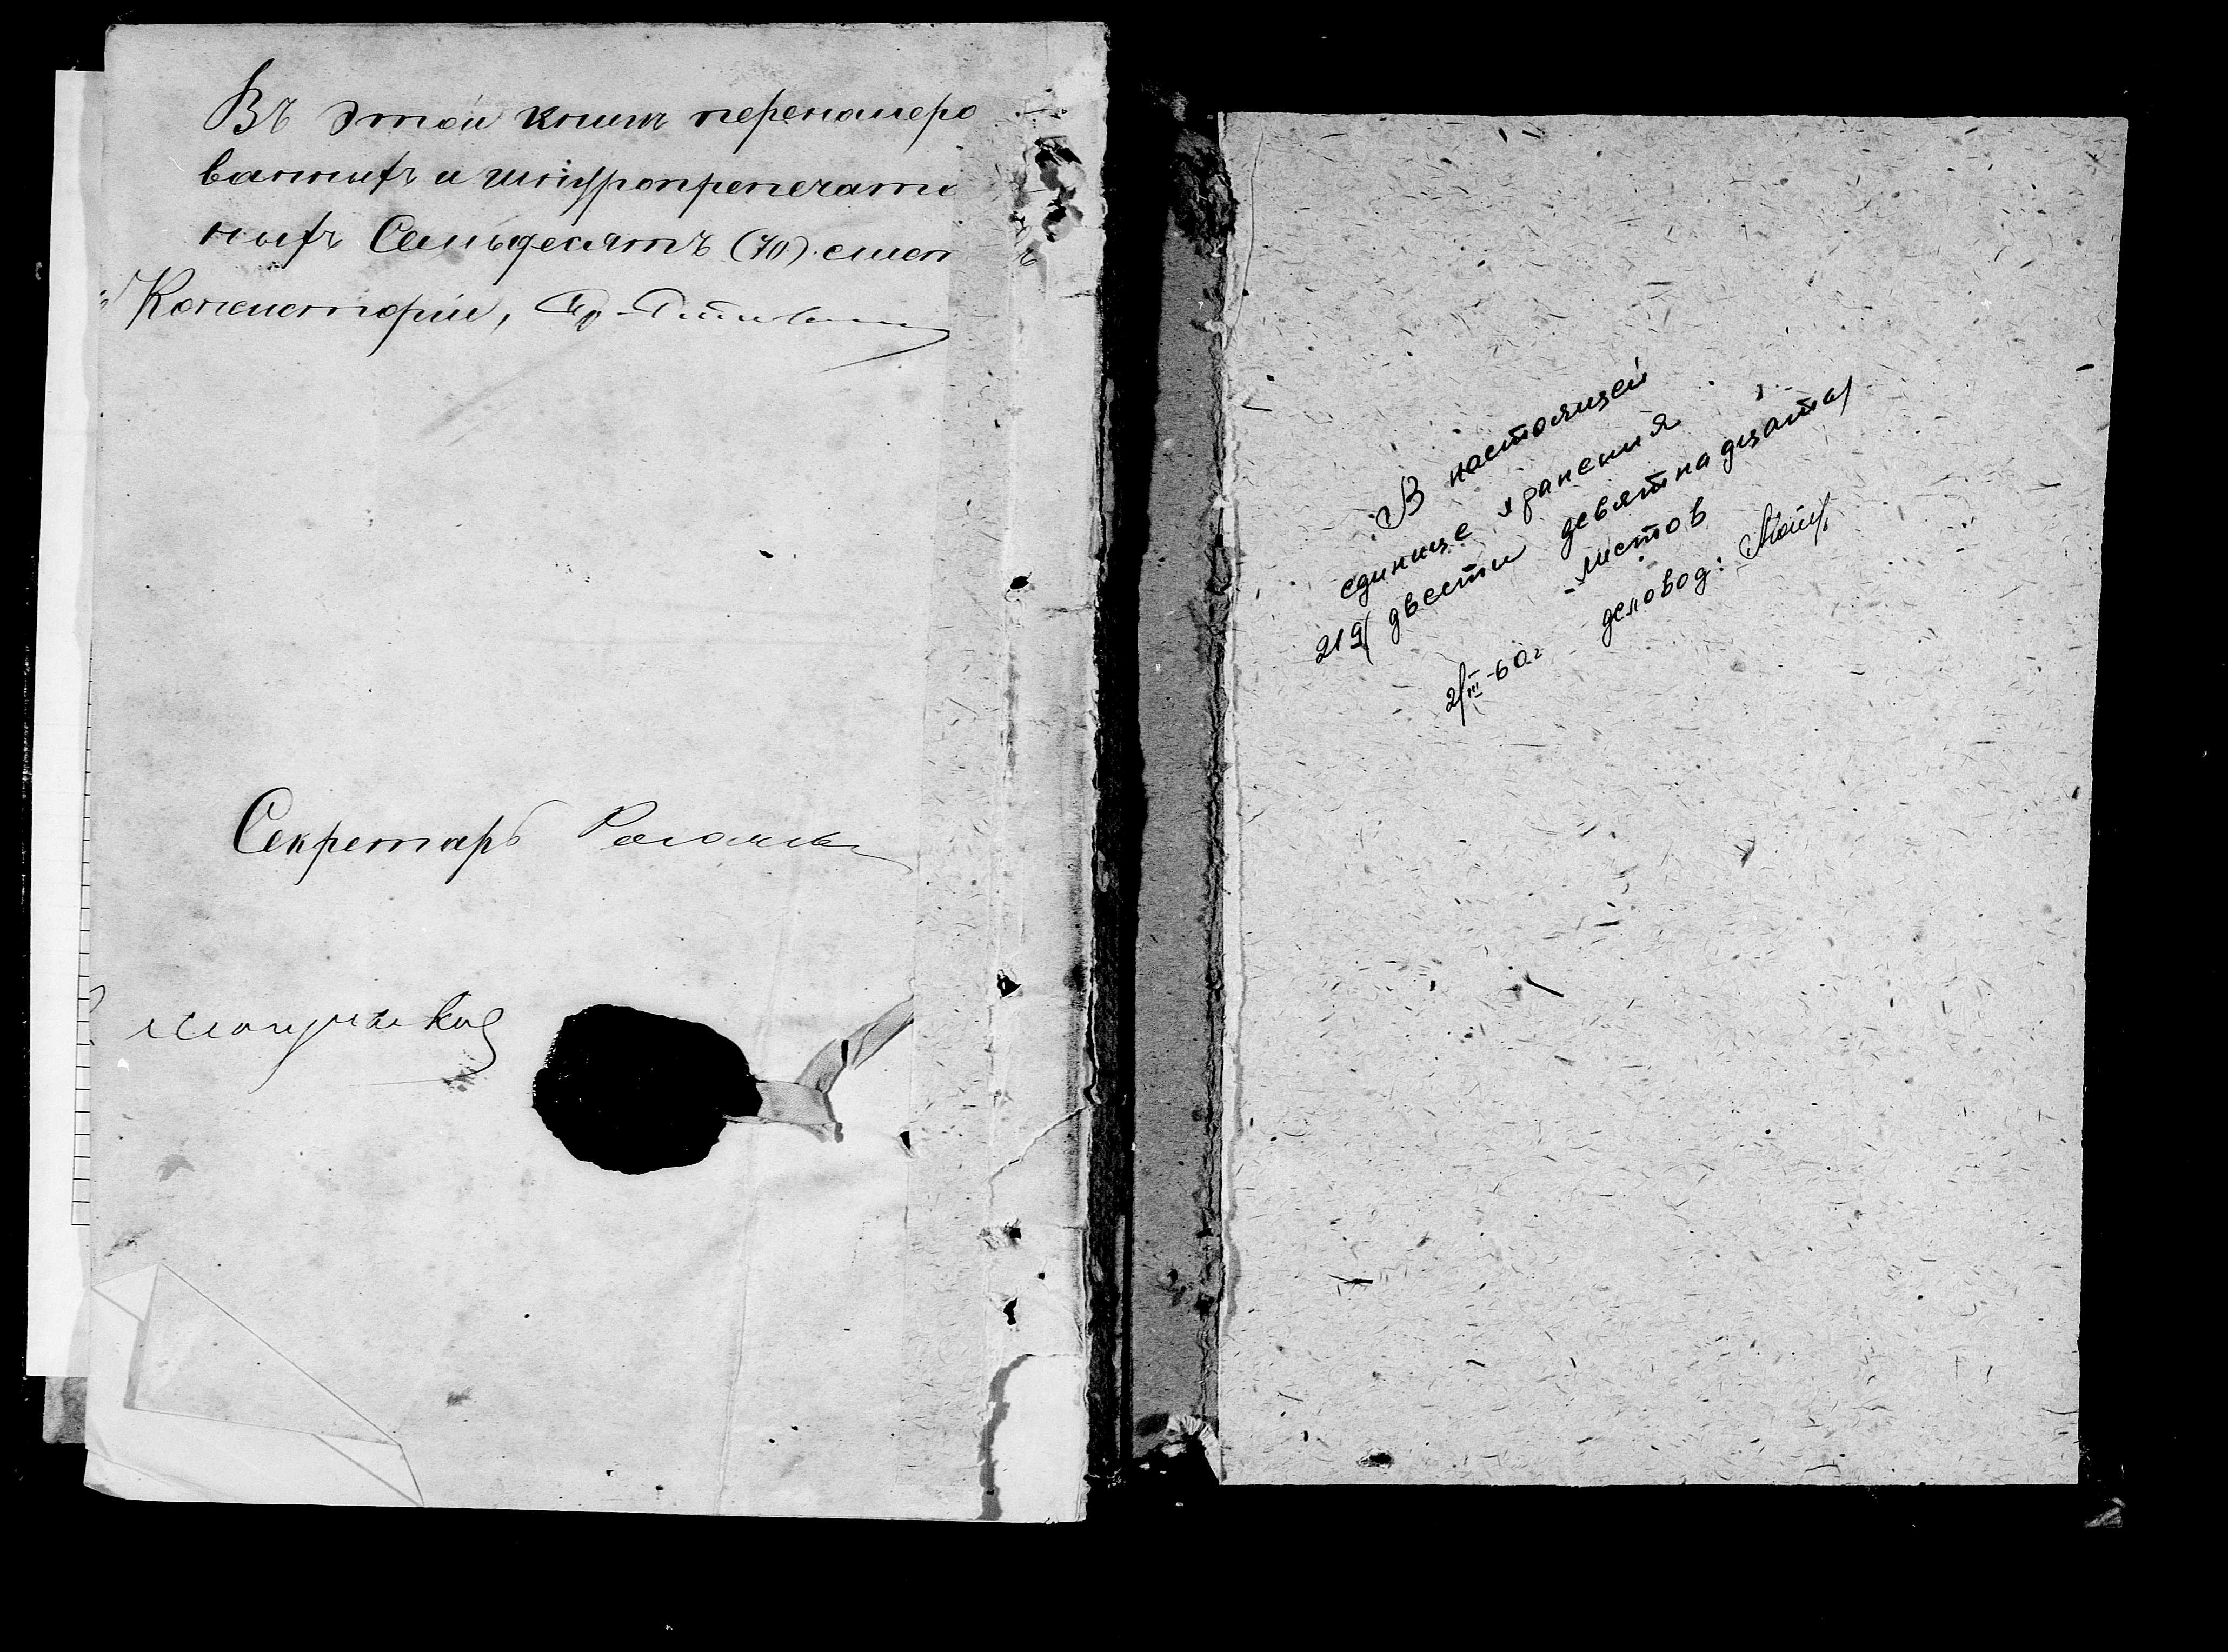 Въ этой книгѣ перенумеро
ванныхъ и шнуропрепечатан
ныхъ Семьдесятъ (70) лист ъ
Консисторіи,
Секретарь
В настоящей
единице хранения
219 (двести девятнадцать)
листов
2/III-60 г деловод: